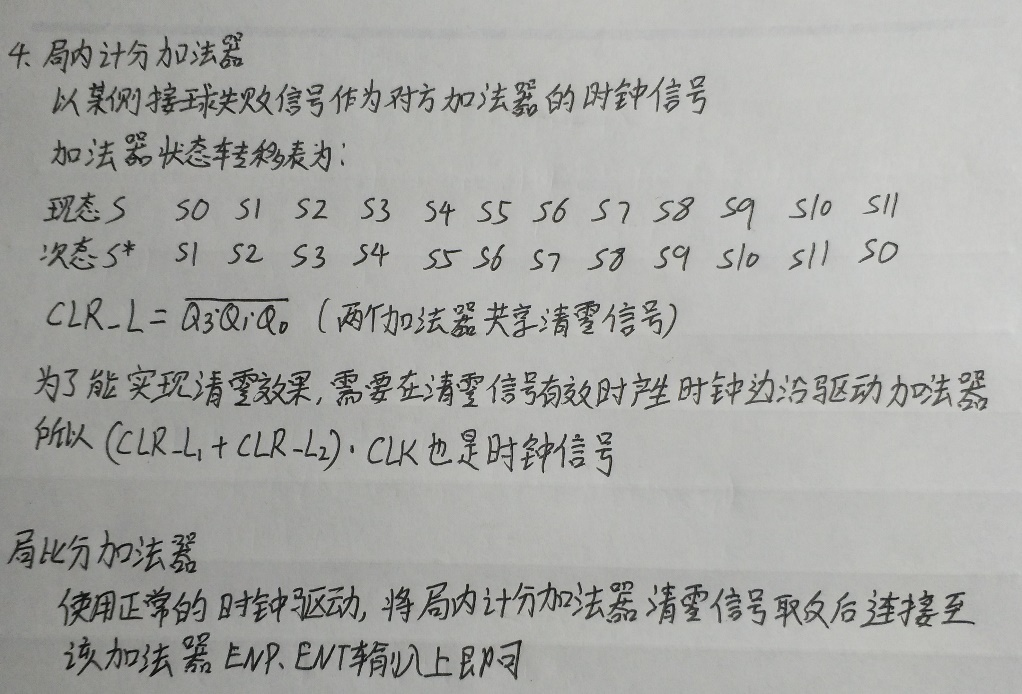 4. 局内计分加法器
以某侧接球失败信号作为对方加法器的时钟信号
加法器状态转移表为:
现态S S0 S1 S2 S3 S4 S5 S6 S7 S8 S9 S10 S11
次态S* S1 S2 S3 S4 S5 S6 S7 S8 S9 S10 S11 S0
CLR_L = \overline{Q₃·Q₁·Q₀} (两个加法器共享清零信号)
为了能实现清零效果,需要在清零信号有效时产生时钟边沿驱动加法器
所以 (CLR_L₁ + CLR_L₂)·CLK 也是时钟信号
局比分加法器
使用正常的时钟驱动,将局内计分加法器清零信号取反后连接至
该加法器 ENP、ENT输入上即可